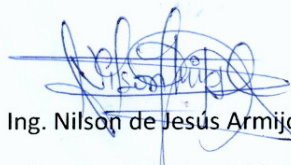 Ing. Nilson de Jesús Armijo